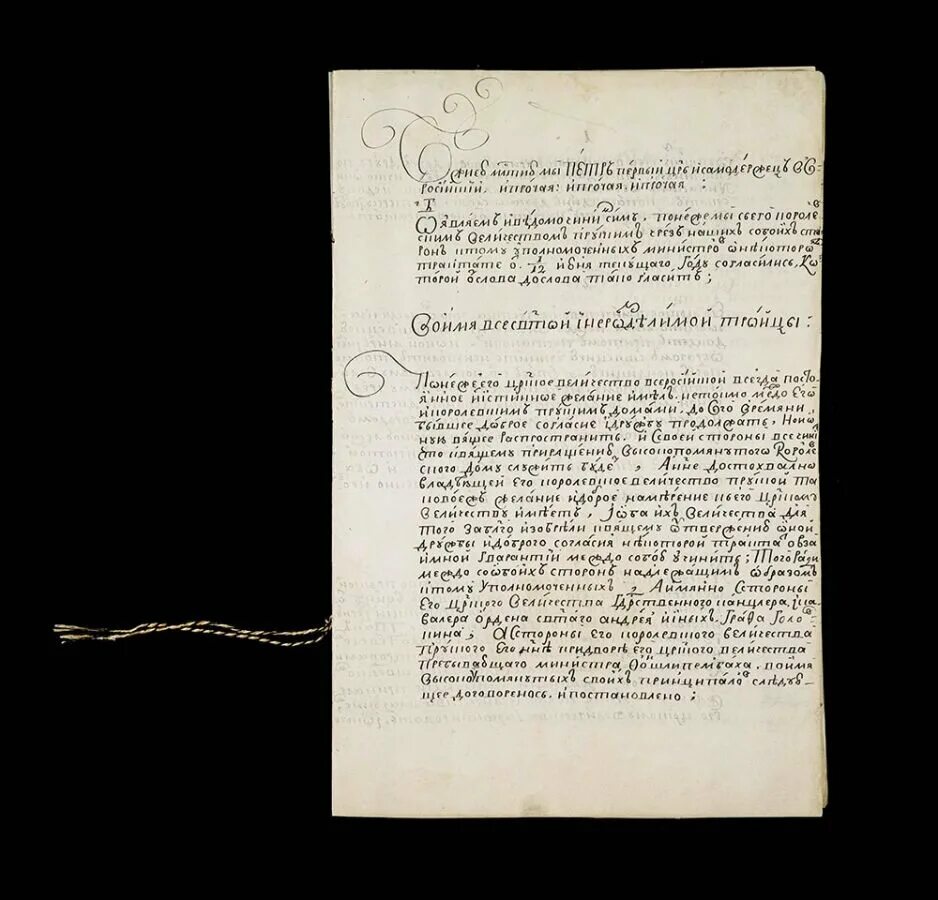 Бжиею млтию мы ПЕТРЪ первый црь исамодержецъ всеро-
росиискии, ипротчая: ипротчая, ипротчая:
Ѿявляемъ ивѣдомо чинимъ симъ, понеже мы съего королев-
скимъ величествомъ прускимъ чрезъ нашихъ собоихъ сто-
ронъ ктому уполномоченныхъ министровъ онѣкоторомъ
трактате ѿ 1/12 июня текущаго, году согласились, ко-
торой ѿслова дослова тако гласитъ;
Воимя всесвѧтой инераздѣлимой троицы:
Понеже его црское величество всеросииское всегда посто-
янное иистинное желание имѣлъ, нетокмо межъ его
икоролевскимъ прускимъ домами, досего времяни
бывшее доброе согласие идружбу продолжать, но иону-
ную вящее распространить, и своей стороны все чинить
что квящему приращению, высокопомянутого королев-
ского дому служить буде, Аи нне достохвално
владѣющей его королевское величество пруской та-
ковоежъ желание идоброе намѣрение кего црскому
величеству имѣетъ, Иоба ихъ величества для
того заблго изобрѣли квящему ѿтвержению оной
дружбы идоброго согласия нѣкоторой трактатъ обза-
имной гваранти между собою учинить; Того ради
между сообоихъ сторонъ надлежащимъ образомъ
ктому уполномоченныхъ, Аимянно состороны
Его црского величества гдрственного канцлера, ика-
валера ордена святаго андрея ииныхъ. Графа Голо-
кина; Асостороны его королевского величества
пруского, его ннѣ придворѣ его црского величества
пребывающаго министра, фоншлипембаха, воимя
высокопомянутыхъ своихъ принципаловъ слѣдую-
щее договоренось, ипостановлено;